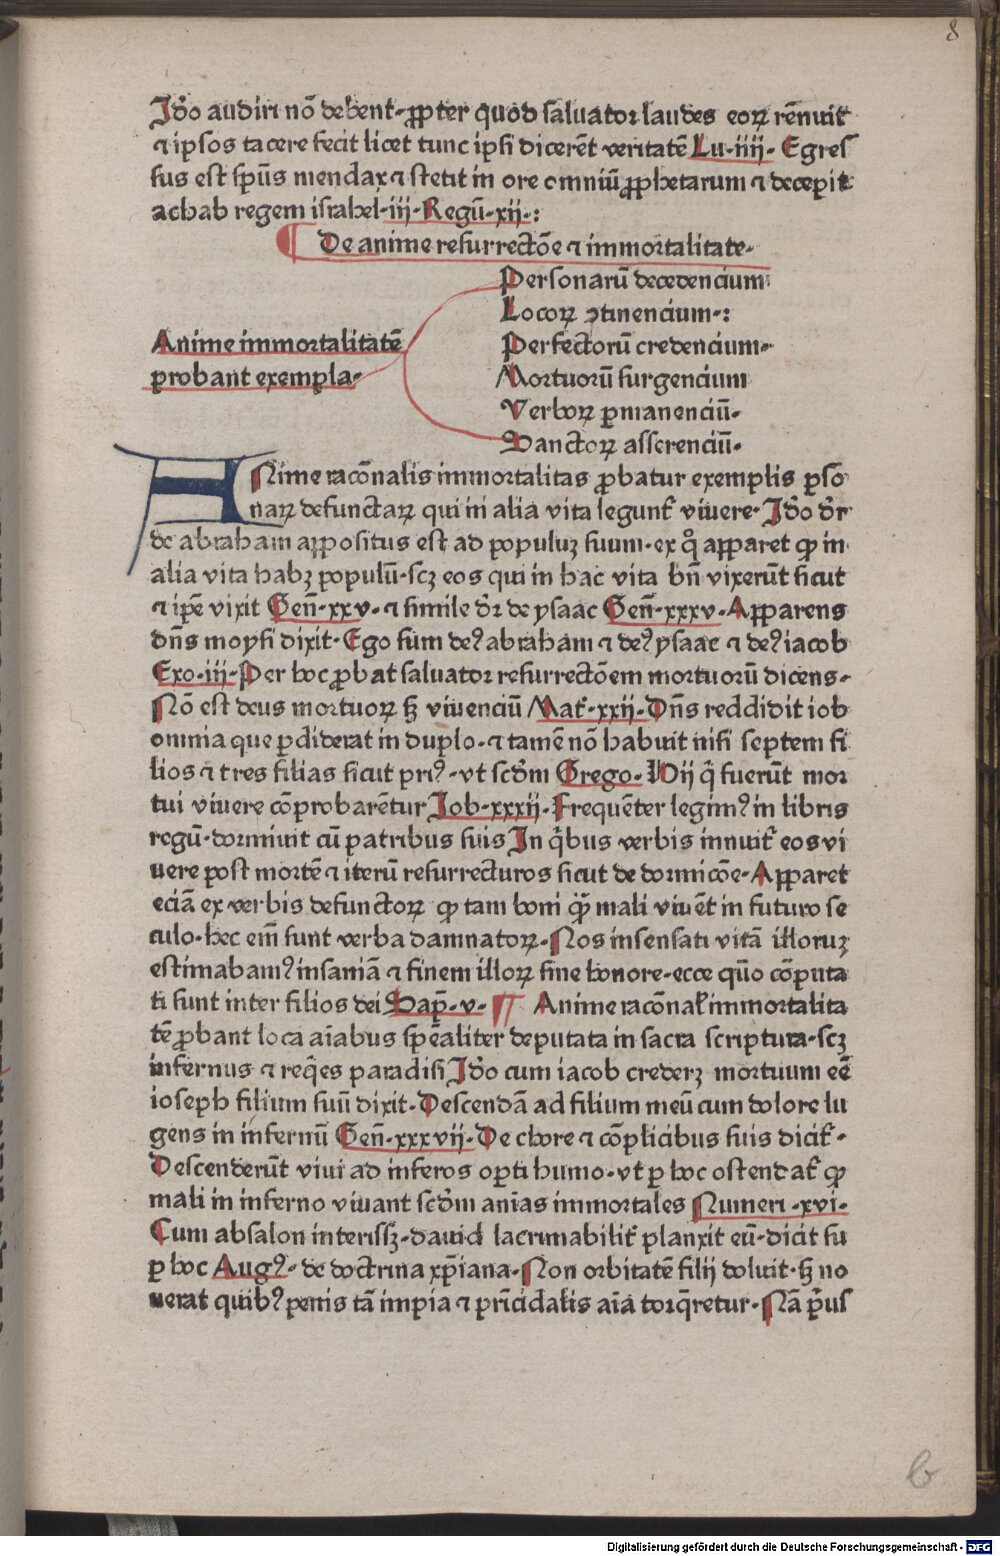 8
Jdo audiri nō debent·ꝓpter quod saluator laudes eoꝝ rēnuit
⁊ ipsos tacere fecit licet tunc ipsi dicerēt veritatē Lu·iiij· Egres
sus est spūs mendax ⁊ stetit in ore omniū ꝓphetarum ⁊ decepit
achab regem israhel·iij·Regū·xij·:
¶ De anime resurrectōe ⁊ immortalitate·
Anime immortalitatē
probant exempla·
Personarū decedencium
Locoꝝ ꝯtinencium·:
Perfectorū credencium·
Mortuorū surgencium
Verboꝝ ꝑmanenciū·
Sanctoꝝ asserenciū·
ANime racōnalis immortalitas ꝓbatur exemplis ꝑso
naꝝ defunctaꝝ qui in alia vita legunt᷑ viuere·Jdo dr
de abraham appositus est ad populuꝫ suum·ex qͦ apparet ꝙ in
alia vita habꝫ populū·scꝫ eos qui in hac vita bn̄ vixerūt sicut
⁊ ipē vixit Gen̄·xxv·⁊ simile dr de ysaac Gen̄·xxxv·Apparens
dn̄s moysi dixit·Ego sum deꝰ abraham ⁊ deꝰ ysaac ⁊ deꝰ iacob
Exo·iij·Per hoc ꝓbat saluator resurrectōem mortuorū dicens·
Nō est deus mortuoꝝ sꝫ viuenciū Mat᷑·xxij·Dn̄s reddidit iob
omnia que ꝑdiderat in duplo·⁊ tamē nō habuit nisi septem fi
lios ⁊ tres filias sicut priꝰ·vt scdm Grego·Hij q̄ fuerūt mor
tui viuere cōprobarētur Job·xxxij·Frequēter legimꝰ in libris
regū·dormiuit cū patribus suis In qibus verbis innuit᷑ eos vi
uere post mortē ⁊ iterū resurrecturos sicut de dormicōe·Apparet
eciā ex verbis defunctoꝝ ꝙ tam boni qᷓꝫ mali viuēt in futuro se
culo·hec em̄ sunt verba damnatoꝝ·Nos insensati vitā illoruꝫ
estimabamꝰ insaniā ⁊ finem illoꝝ sine honore·ecce quō cōputa
ti sunt inter filios dei Sap̄·v·¶ Anime racōnal᷑ immortalita
tē ꝓbant loca aīabus spēaliter deputata in sacra scriptura·scꝫ
infernus ⁊ req̄es paradisi Jdo cum iacob crederꝫ mortuum eē
ioseph filium suū dixit·Descendā ad filium meū cum dolore lu
gens in infernū Gen̄·xxxvij·De chore ⁊ cōplicibus suis dicit᷑·
Descenderūt viui ad inferos opti humo·vt ꝑ hoc ostendat᷑ ꝙ
mali in inferno viuant scdm anīas immortales Numeri·xvi·
Cum absalon interissꝫ·dauid lacrimabilit᷑ planxit eū·dicit su
ꝑ hoc Augꝰ·de doctrina xp̄iana·Non orbitatē filij doluit·sꝫ no
uerat quibꝰ penis tā impia ⁊ prīcidalis aīa torq̄retur·Nā pͥus
b
Digitalisierung gefördert durch die Deutsche Forschungsgemeinschaft · DFG